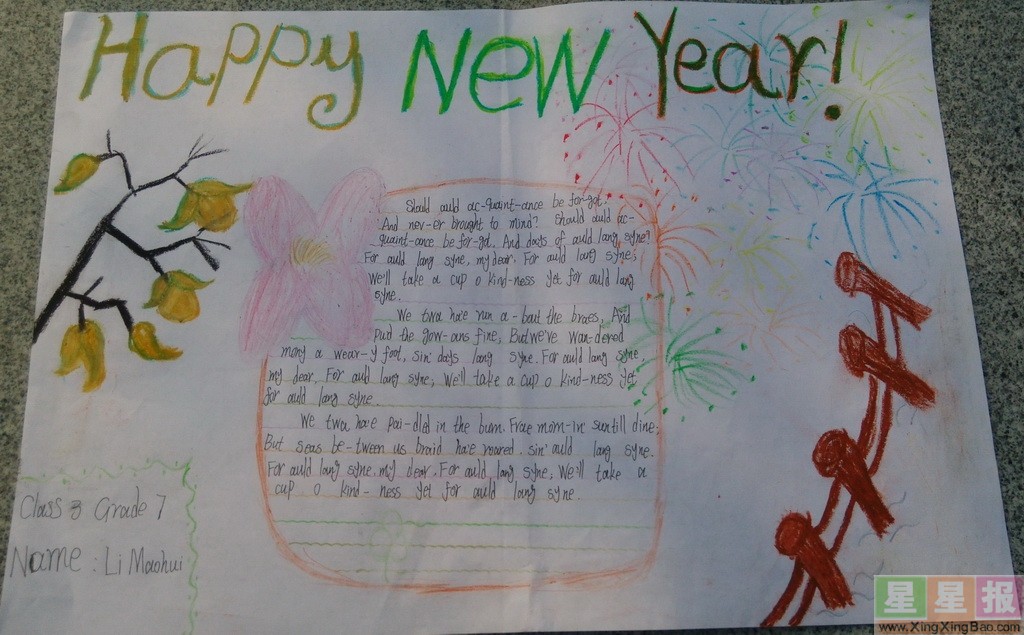 Happy New Year!
Should auld ac-quaint-ance be for-got.
And nev-er brought to mind? Should auld ac-
quaint-ance be for-got. And days of auld lang syne?
For auld lang syne, my dear. For auld lang syne,
We'll take a cup o kind-ness yet for auld lang
syne.
We twa ha'e run a-bout the braes, And
pu'd the gow-ans fine, But we've wan-dered
mony a wear-y foot, sin' days lang syne. For auld lang syne.
my dear. For auld lang syne, We'll take a cup o kind-ness yet
for auld lang syne.
We twa have pai-dled in the burn. Frae morn-in' sun till dine.
But seas be-tween us braid ha'e roared sin' auld lang syne.
For auld lang syne. my dear. For auld lang syne, We'll take a
cup o kind-ness yet for auld lang syne.
Class 3 Grade 7
Name: Li Maohui
星星报
www.XingXingBao.com